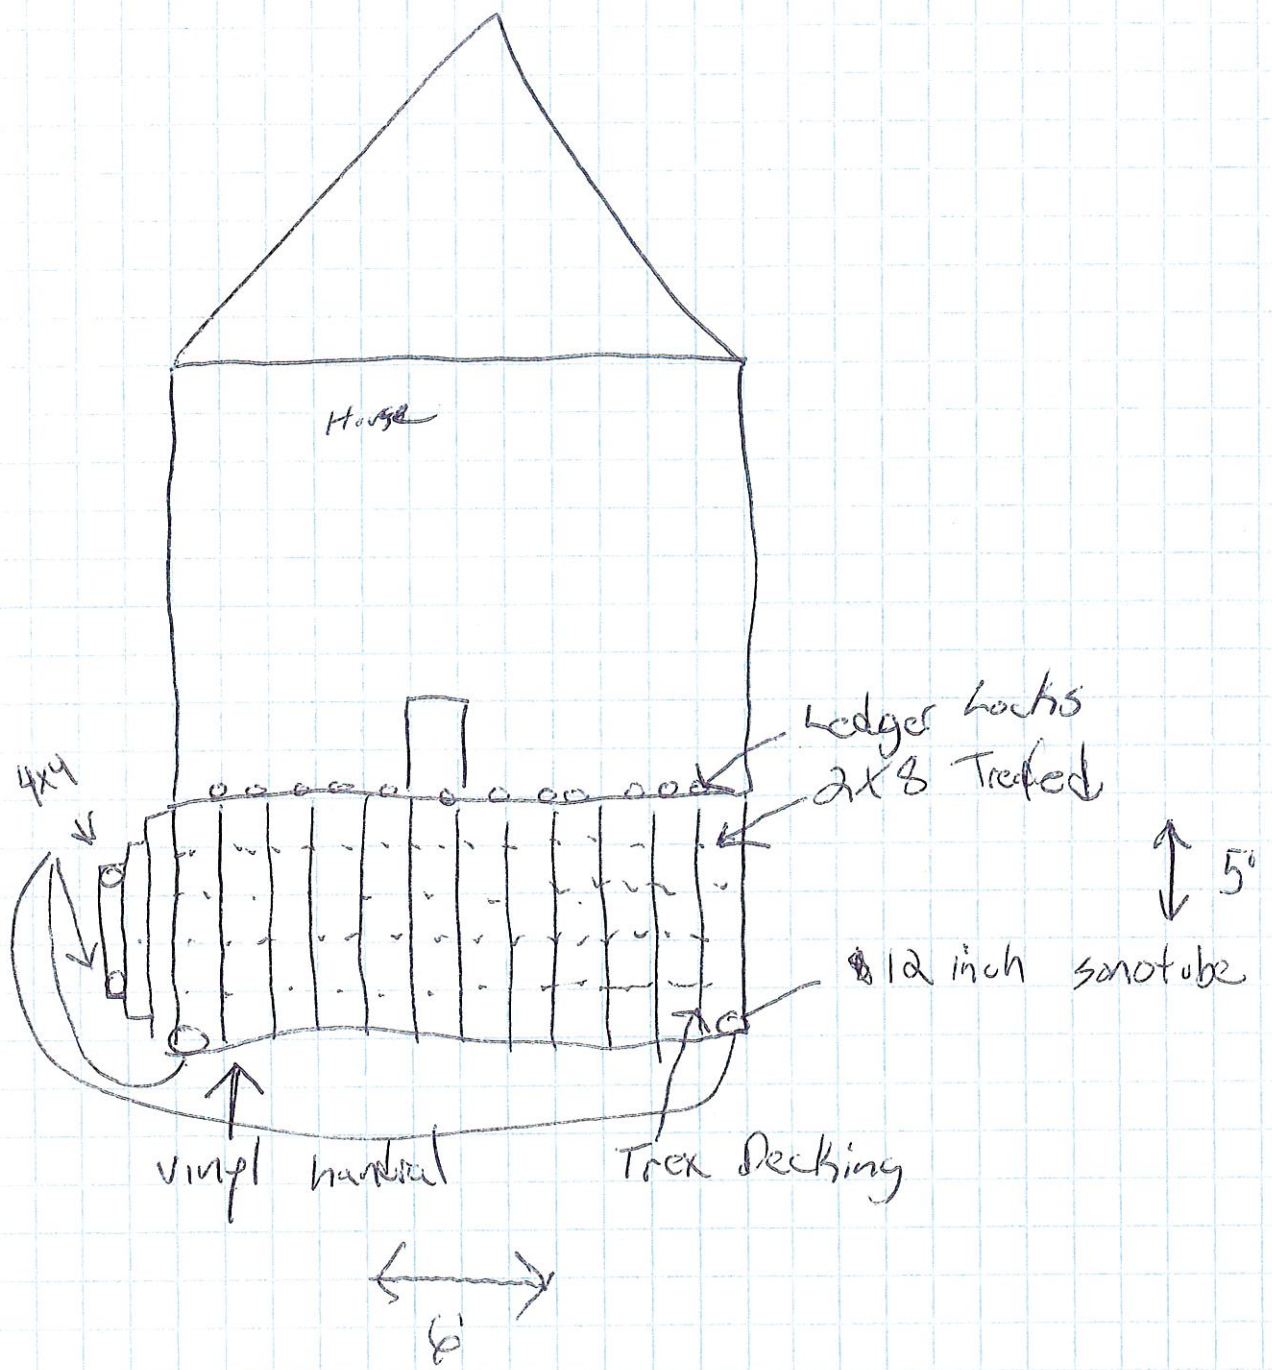 House
Ledger Locks
4x4
2x8 Treated
5'
12 inch sonotube
vinyl handrail
Trex Decking
6'